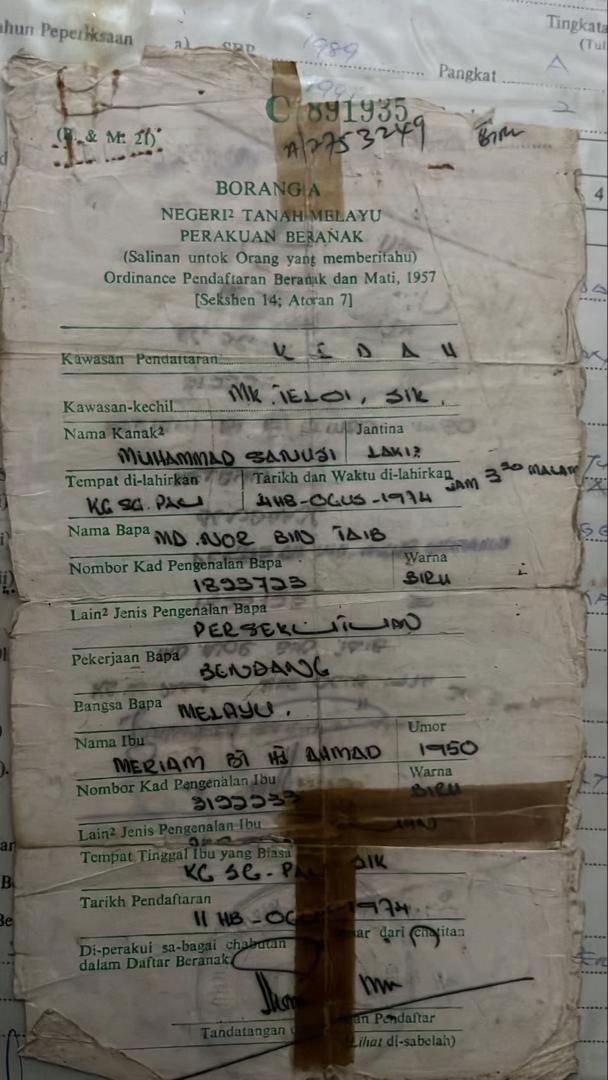 ahun Peperiksaan a) SRP 1989
Tingkata
(Tul
Pangkat A
2
C 891935
(B. & M. 21)
A/2753249 BIRU
BORANG A
NEGERI² TANAH MELAYU
PERAKUAN BERAÑAK
(Salinan untok Orang yang memberitahu)
Ordinance Pendaftaran Beranak dan Mati, 1957
[Sekshen 14; Atoran 7]
Kawasan Pendaftaran KEDAH
Kawasan-kechil MK. TELOI, SIK.
Nama Kanak² Jantina
MUHAMMAD SANUSI LAKI²
Tempat di-lahirkan Tarikh dan Waktu di-lahirkan JAM 3³⁰ MALAM
KG SG. PAU 4HB-OGUS-1974
Nama Bapa MD. NOR BIN TAIB
Nombor Kad Pengenalan Bapa Warna
1823723 BIRU
Lain² Jenis Pengenalan Bapa
PERSEKUTUAN
Pekerjaan Bapa
BENDANG
Bangsa Bapa MELAYU.
Nama Ibu Umor
MERIAM BT HJ AHMAD 1950
Nombor Kad Pengenalan Ibu Warna
3192233 BIRU
Lain² Jenis Pengenalan Ibu
Tempat Tinggal Ibu yang Biasa
KG SG. PAU SIK
Tarikh Pendaftaran
11 HB-OGUS-1974.
Di-perakui sa-bagai chabutan dari chatitan
dalam Daftar Beranak
Tandatangan Pendaftar
(Lihat di-sabelah)